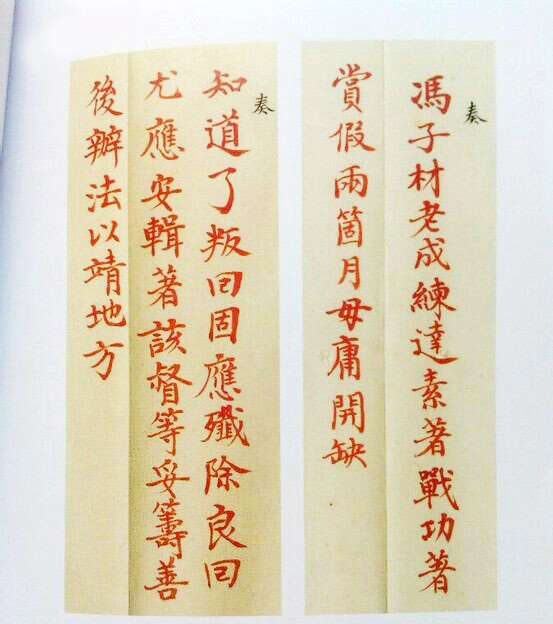 奏
馮子材老成練達素著戰功著
賞假兩箇月毋庸開缺
奏
知道了叛回固應殲除良回
尤應安輯著該督等妥籌善
後辦法以靖地方